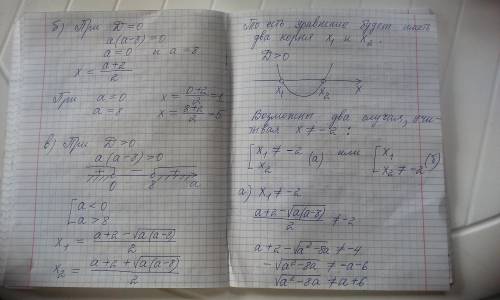 б) При D=0
a(a-8)=0
a=0 и a=8
x = (a+2)/2
При a=0 x = (0+2)/2 = 1
a=8 x = (8+2)/2 = 5
в) При D>0
a(a-8)>0
+ - +
0 8 a
[a<0
a>8
x₁ = (a+2-√(a(a-8)))/2
x₂ = (a+2+√(a(a-8)))/2
То есть уравнение будет иметь
два корня x₁ и x₂.
D>0
x₁ x₂ x
Возможны два случая, учи-
тывая x≠-2:
[x₁≠-2 (а) или [x₁ (б)
x₂ x₂≠-2
а) x₁≠-2
(a+2-√(a(a-8)))/2 ≠ -2
a+2-√(a²-8a) ≠ -4
-√(a²-8a) ≠ -a-6
√(a²-8a) ≠ a+6